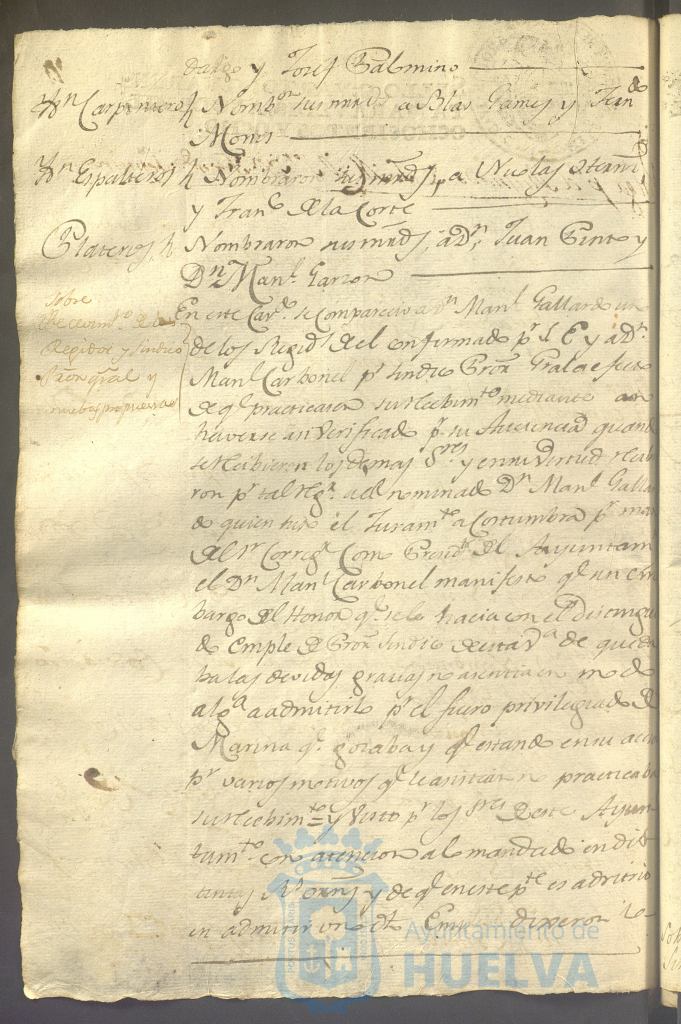 dalgo y Josef Palmino
Yn Carpinteros h Nombron sus mrds a Blas Gamez y Ferndo
Mones
Yn Espalteros h Nombraron sus mrds, a Nicolas
y Franco de la Corte
Plateros, h Nombraron sus mrds, a Dn, Juan Pinto y
Dn Manl Garzon
sobre
Recevimto de los
Regidor y sindico
Pror gral y
nuebas propuestas
En este Cavdo se comparecio a Dn Manl Gallardo un
de los Regids del confirmado pr S. E y a Dn
Manl Carbonel pr sindico Pror Gral a efecto
de qe practicasen su recibimto mediante a no
haverse asi verificado pr su Ausencia quando
se recibieron los demas Sres y en su virtud recibie
ron pr tal regr a el nominado Dn Manl Galla
do quien hizo el Juramto acostumbra pr man
del Sr Corregr Como Presidte del Ayuntam
el Dn Manl Carbonel manifesto qe sin em
bargo del Honor qe se le hacia con el distingui
do empleo de Pror sindico de esta Va de que da
ba las devidas gracias no asentia en modo
algo a admitirlo pr el fuero privilegiado de
Marina qe gozaba y qe estando en su
pr varios motivos qe le asistian no practicaba
su recibimto y visto pr los Sres de este Ayun
tamto con atencion a lo mandado en dis
tintas Rs ordns y de qe en este pte es advitrio
en admitir un dho Empleo dixeron
Ayuntamiento de
HUELVA